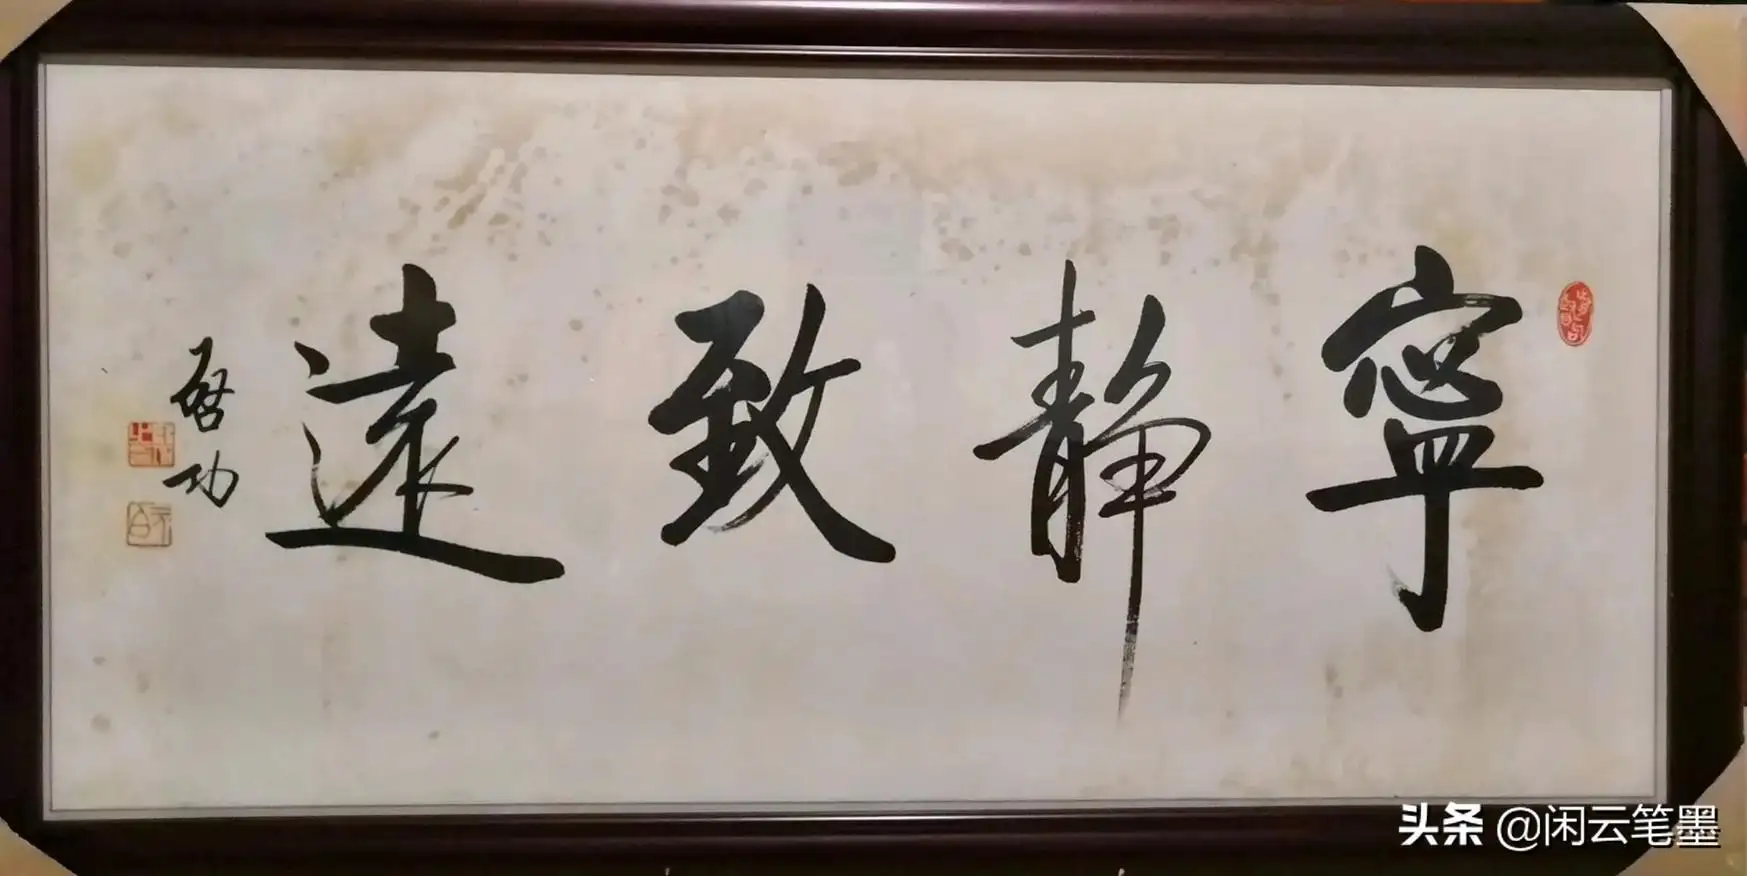 寧靜致遠
啓功
头条 @闲云笔墨